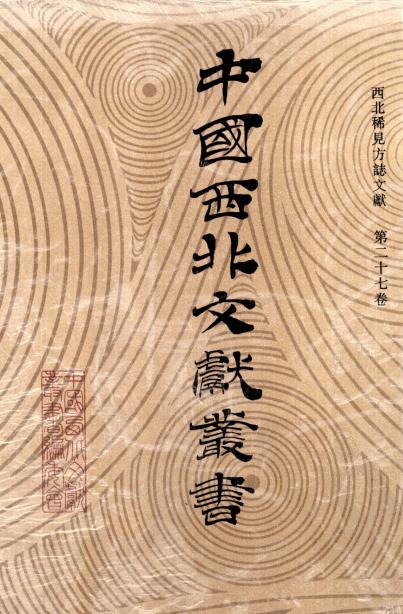 西北稀見方誌文獻 第二十七卷
中國西北文獻叢書
中國西北文獻
叢書編委會